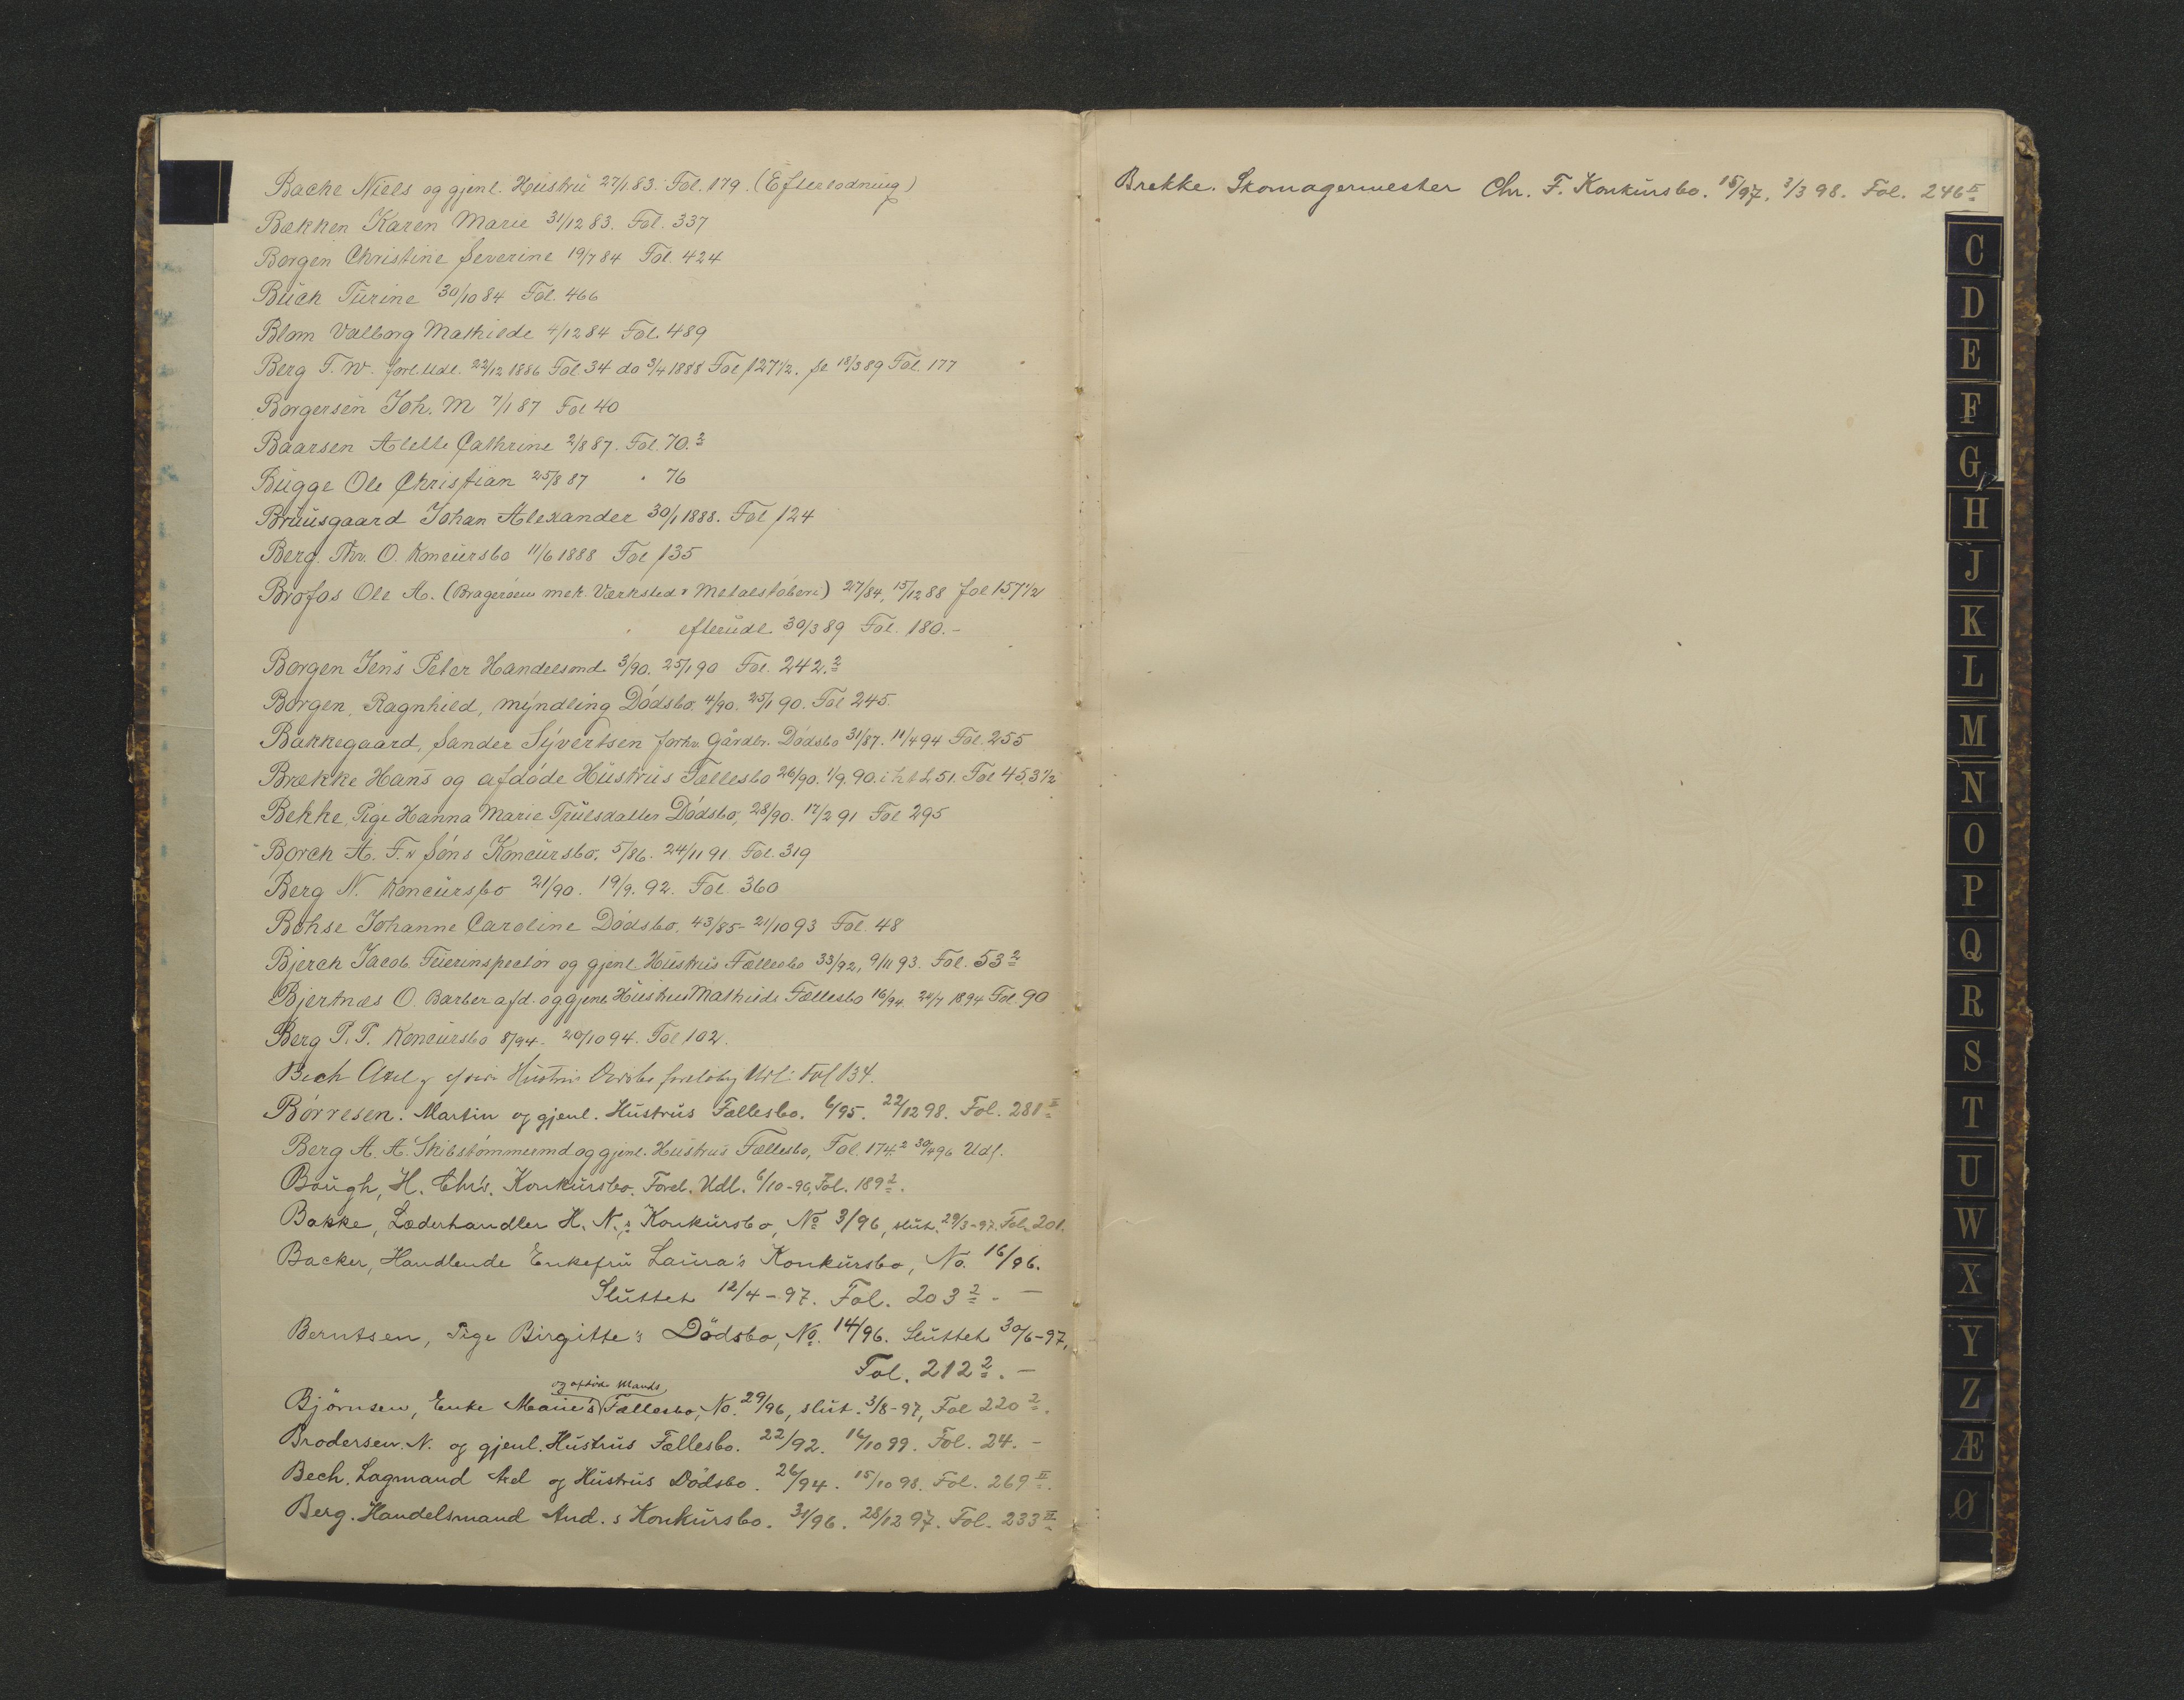 Bache Niels og gjenl. Hustru 27/1 83. Fol. 179. (Efterlodning)
Bækken Karen Marie 31/12 83. Fol. 337
Borgen Christine Severine 19/7 84 Fol. 424
Buch Turine 30/10 84 Fol. 466
Blom Valborg Mathilde 4/12 84 Fol. 489
Berg T. W. forl. Udl. 22/12 1886 Fol. 34 do 3/4 1888 Fol 127 1/2. se 18/3 89 Fol. 177
Borgersen Joh. M 7/1 87 Fol 40
Baarsen Alette Cathrine 2/8 87. Fol. 70.2
Bugge Ole Christian 25/8 87 " 76
Bruusgaard Johan Alexander 30/1 1888. Fol 124
Berg. Thv. O. Koncursbo 11/6 1888 Fol 135
Brofos Ole A. (Bragerøens mek. Værksted & Metalstøberi) 27/84, 15/12 88 fol 157 1/2
efterudl. 30/3 89 Fol. 180.-
Borgen Jens Peter Handelsmd. 3/90. 25/1 90 Fol. 242.2
Borgen, Ragnhild, myndling Dødsbo, 4/90. 25/1 90. Fol 245.
Bakkegaard, Sander Syvertsen forhv. Gårdbr. Dødsbo 31/87. 11/4 94 Fol. 255
Brække Hans og afdøde Hustrus Fællesbo 26/90. 1/9. 90. i h t L 51. Fol 453 1/2
Bekke, Pige Hanna Marie Trulsdatter Dødsbo, 28/90. 17/2 91 Fol 295
Borch A. F. & Søns Koncursbo. 5/86. 24/11 91. Fol. 319
Berg N. Koncursbo 21/90. 19/9. 92. Fol. 360
Bohse Johanne Caroline Dødsbo. 43/85 - 21/10 93 Fol. 48
Bjerch Jacob. Feierinspector og gjenl. Hustrus Fællesbo 33/92, 9/11 93. Fol. 53 2
Bjertnæs O. Barber afd. og gjenl. Hustrus Mathilde Fællesbo 16/94. 24/7 1894 Fol. 90
Berg P. T. Koncursbo 8/94. 20/10 94. Fol 102.
Bech Axel og Hustrus Dødsbo foreløbig Udl: Fol 134.
Børresen. Martin og gjenl. Hustrus Fællesbo. 6/95. 22/12 98. Fol. 281 II
Berg A. A. Skibstømmermd og gjenl. Hustrus Fællesbo, Fol. 174 2 30/4 96 Udl.
Baugh, H. Chr's. Konkursbo. Forel. Udl. 6/10-96, Fol. 189 2.
Bakke, Læderhandler H. N.,s Konkursbo, No 3/96, slut. 29/3-97. Fol. 201.
Backer, Handlende Enkefru Laura's Konkursbo, No. 16/96.
Sluttet 12/4-97. Fol. 203 2. -
Berntsen, Pige Birgitte's Dødsbo, No. 14/96. Sluttet 30/6-97,
Fol. 212 2. -
og afdøde Mands
Bjørnsen, Enke Marie's Fællesbo, No. 29/96, slut. 3/8-97, Fol 220 2.
Brodersen. N. og gjenl. Hustrus Fællesbo. 22/92. 16/10 99. Fol. 24. -
Bech. Lagmand Axel og Hustrus Dødsbo. 26/94. 15/10 98. Fol. 269 II.
Berg. Handelsmand And.s Konkursbo. 31/96. 28/12 97. Fol. 233 II
Brekke. Skomagermester Chr. F. Konkursbo. 15/97. 3/3 98. Fol. 246 II
C
D
E
F
G
H
J
K
L
M
N
O
P
Q
R
S
T
U
W
X
Y
Z
Æ
Ø